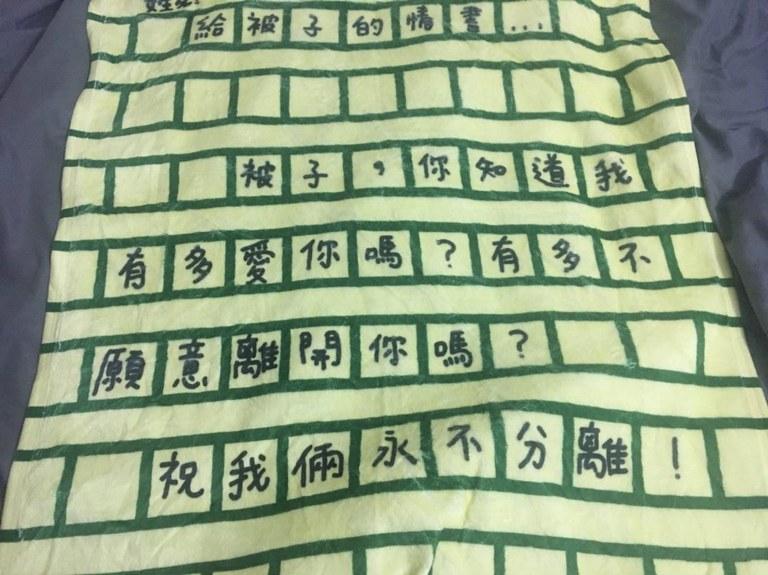 給被子的情書...
被子，你知道我
有多愛你嗎？有多不
願意離開你嗎？
祝我倆永不分離！